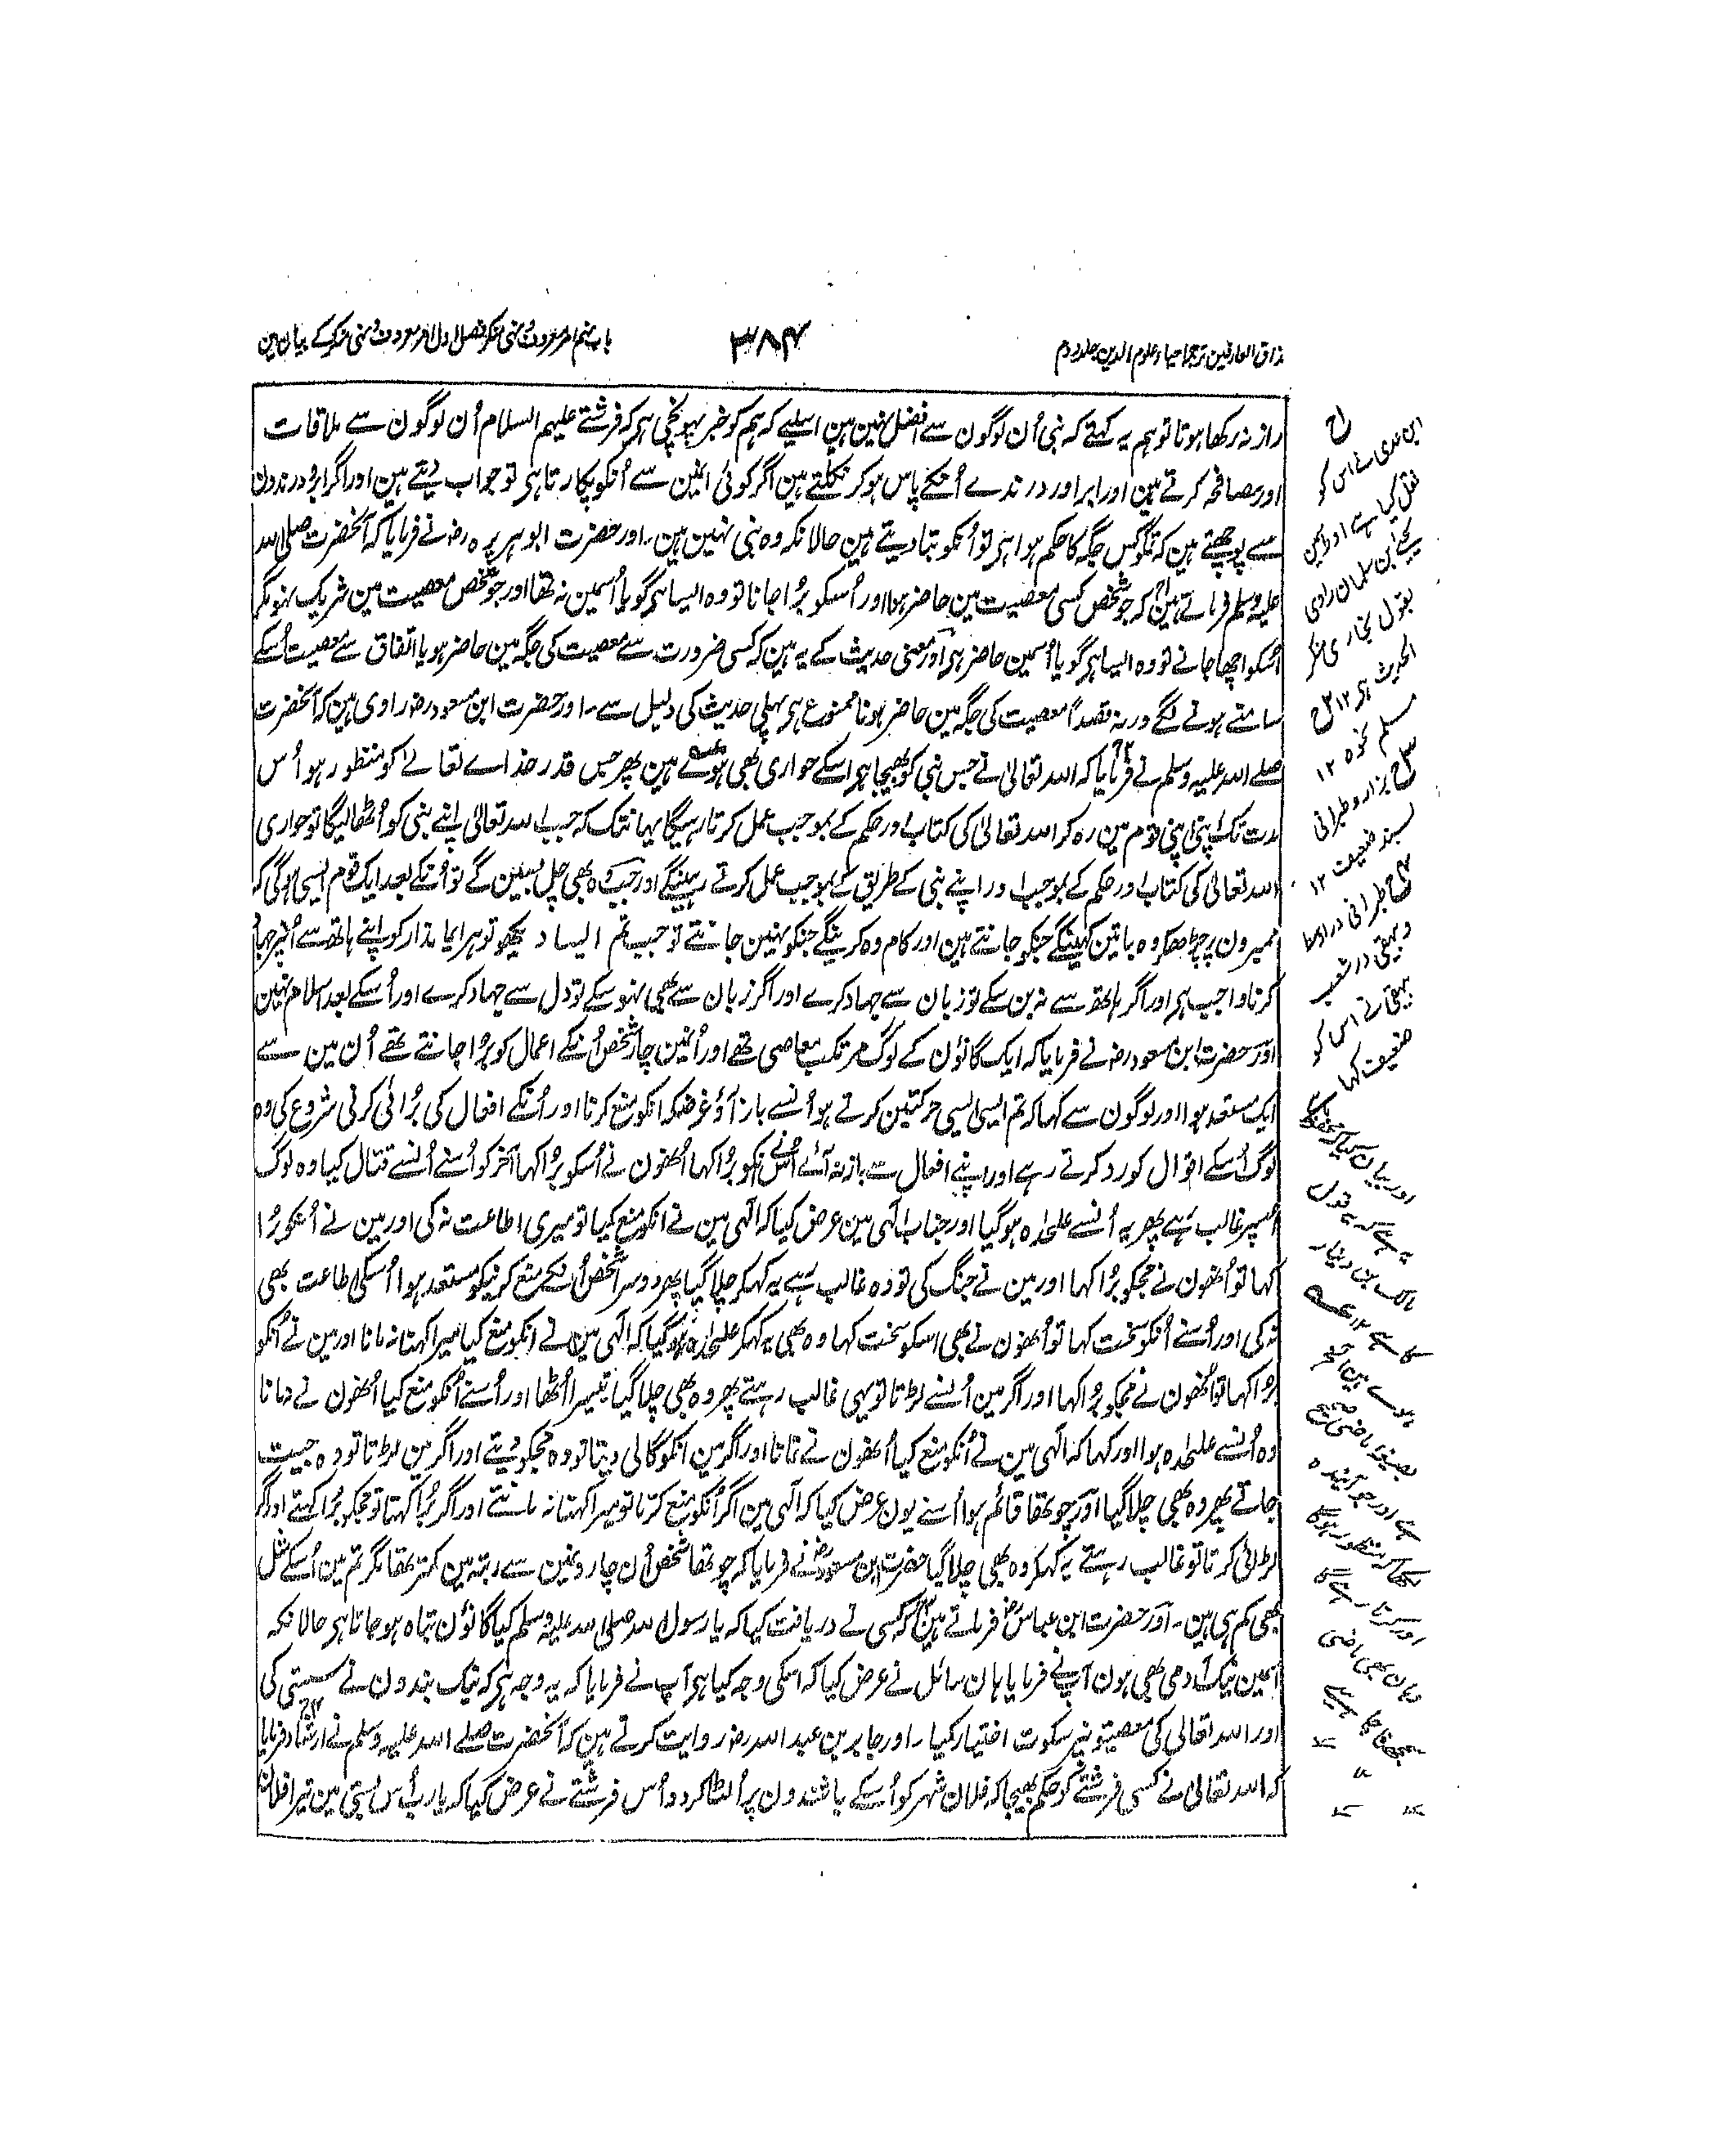 مذاق العارفین ترجمہ احیاء علوم الدین جلد دوم
۳۸۴
باب نہم امر معروف ونہی منکر فصل اول امر معروف ونہی منکر کے بیان مین
راز نہ رکھا ہوتا تو ہم یہ کہتے کہ نبی اُن لوگون سے افضل نہین ہین اسلیے کہ ہم کو خبر پہونچی ہی کہ فرشتے علیہم السلام اُن لوگون سے ملاقات
اور مصافحہ کرتے ہین اور ابر اور درندے اُنکے پاس ہو کر نکلتے ہین اگر کوئی انمین سے اُنکو پکارتا ہی تو جواب دیتے ہین اور اگر ابر و درندون
سے پوچھتے ہین کہ تمکو کس جگہ کا حکم ہوا ہی تو اُنکو بتا دیتے ہین حالانکہ وہ نبی نہین ہین۔ اور حضرت ابو ہریرہ رضہ نے فرمایا کہ آنحضرت صلی اللہ
علیہ وسلم فرماتے ہین کہ جو شخص کسی معصیت مین حاضر ہوا اور اُسکو بُرا جانا تو وہ ایسا ہی گویا اُسمین نہ تھا اور جو شخص معصیت مین شریک نہو مگر
اُسکو اچھا جانے تو وہ ایسا ہی گویا اُسمین حاضر ہی اور معنی حدیث کے یہ ہین کہ کسی ضرورت سے معصیت کی جگہ مین حاضر ہو یا اتفاق سے معصیت اُسکے
سامنے ہونے لگے ورنہ قصداً معصیت کی جگہ مین حاضر ہونا ممنوع ہی پہلی حدیث کی دلیل سے۔ اور حضرت ابن مسعود رضہ راوی ہین کہ آنحضرت
صلے اللہ علیہ وسلم نے فرمایا کہ اللہ تعالیٰ نے جس نبی کو بھیجا ہی اسکے حواری بھی ہوئے ہین پھر جس قدر خداے تعالےٰ کو منظور ہو اُس
مدت تک اپنی اپنی قوم مین رہ کر اللہ تعالیٰ کی کتاب اور حکم کے بموجب عمل کرتا رہیگا یہانتک کہ جب اللہ تعالیٰ اپنے نبی کو اُٹھا لیگا تو حواری
اللہ تعالیٰ کی کتاب اور حکم کے بموجب اور اپنے نبی کے طریق کے بموجب عمل کرتے رہینگے اور جب وہ بھی چل بسین گے تو اُنکے بعد ایک قوم ایسی ہوگی کہ
ممبرون پر چڑھکر وہ باتین کہینگے جنکو جانتے ہین اور کام وہ کرینگے جنکو نہین جانتے تو جب تم ایسا دیکھو تو ہر ایماندار کو اپنے ہاتھ سے اُنپر جہاد
کرنا واجب ہی اور اگر ہاتھ سے نہ بن سکے تو زبان سے جہاد کرے اور اگر زبان سے بھی نہو سکے تو دل سے جہاد کرے اور اُسکے بعد اسلام نہین
اور حضرت ابن مسعود رضہ نے فرمایا کہ ایک گانؤن کے لوگ مرتکب معاصی تھے اور اُنمین چار شخص اُنکے اعمال کو بُرا جانتے تھے اُن مین سے
ایک مستعد ہوا اور لوگون سے کہا کہ تم ایسی ایسی حرکتین کرتے ہو اُنسے باز آؤ غرضکہ انکو منع کرنا اور اُنکے افعال کی بُرائی کرنی شروع کی وہ
لوگ اُسکے اقوال کو رد کرتے رہے اور اپنے افعال سے باز نہ آئے اُس نے انکو بُرا کہا اُنھون نے اُسکو بُرا کہا آخر کو اُسنے اُنسے قتال کیا وہ لوگ
اُسپر غالب رہے پھر یہ اُنسے علیحدہ ہو گیا اور جناب الٰہی مین عرض کیا کہ الٰہی مین نے انکو منع کیا تو میری اطاعت نہ کی اور مین نے اُنکو بُرا
کہا تو اُنھون نے مجکو بُرا کہا اور مین نے جنگ کی تو وہ غالب رہے یہ کہکر چلا گیا پھر دوسرا شخص اُنکے منع کرنیکو مستعد ہوا اُسکی اطاعت بھی
نہ کی اور اُسنے اُنکو سخت کہا تو اُنھون نے بھی اسکو سخت کہا وہ بھی یہ کہکر علیحدہ ہو گیا کہ الٰہی مین نے انکو منع کیا میرا کہنا نہ مانا اور مین نے اُنکو
بُرا کہا تو اُنھون نے مجکو بُرا کہا اور اگر مین اُنسے لڑتا تو یہی غالب رہتے پھر وہ بھی چلا گیا تیسرا اُٹھا اور اُسنے اُنکو منع کیا اُنھون نے نہ مانا
وہ اُنسے علیحدہ ہوا اور کہا کہ الٰہی مین نے اُنکو منع کیا اُنھون نے نمانا اور اگر مین انکو گالی دیتا تو وہ مجکو دیتے اور اگر مین لڑتا تو وہ جیت
جاتے پھر وہ بھی چلا گیا اور چوتھا قائم ہوا اُسنے یون عرض کیا کہ الٰہی مین اگر اُنکو منع کرتا تو میرا کہنا نہ مانتے اور اگر بُرا کہتا تو مجکو بُرا کہتے اور اگر
لڑائی کرتا تو غالب رہتے یہ کہکر وہ بھی چلا گیا حضرت ابن مسعود رضہ نے فرمایا کہ چوتھا شخص اُن چارونمین سے رتبہ مین کمتر تھا مگر تم مین اُسکے مثل
بھی کم ہی ہین۔ اور حضرت ابن عباس رضہ فرماتے ہین کہ کسی نے دریافت کیا کہ یا رسول اللہ صلی اللہ علیہ وسلم کیا گانؤن تباہ ہو جاتا ہی حالانکہ
اُسمین نیک آدمی بھی ہون آپنے فرمایا ہان سائل نے عرض کیا کہ اسکی وجہ کیا ہی آپ نے فرمایا کہ یہ وجہ ہی کہ نیک بندون نے سستی کی
اور اللہ تعالیٰ کی معصیتونپر سکوت اختیار کیا۔ اور جابر بن عبد اللہ رضہ روایت کرتے ہین کہ آنحضرت صلے اللہ علیہ وسلم نے ارشاد فرمایا
کہ اللہ تعالیٰ نے کسی فرشتے کو حکم بھیجا کہ فلان شہر کو اُسکے باشندون پر اُلٹا کر دو اُس فرشتے نے عرض کیا کہ یا رب اُس بستی مین تیرا فلان
ابن عدی نے اس کو
نقل کیا ہے اور اسمین
یحیےٰ بن سلمان راوی
بقول بخاری منکر
الحدیث ہی ۱۲
مسلم نحوہ ۱۲
بزار و طبرانی
بسند ضعیف ۱۲
طبرانی در اوسط
و بیہقی در شعب
بیہقی نے اس کو
ضعیف کہا ہے
اور بیان کیا کہ محفوظ
یہ ہے کہ یہ قول
مالک بن دینار
کا ہے ۱۲
بصیغہ ماضی
ہے اور جو آیندہ
اور کرتا رہے گا
وہان بھی ماضی
سمجھنا چاہیے